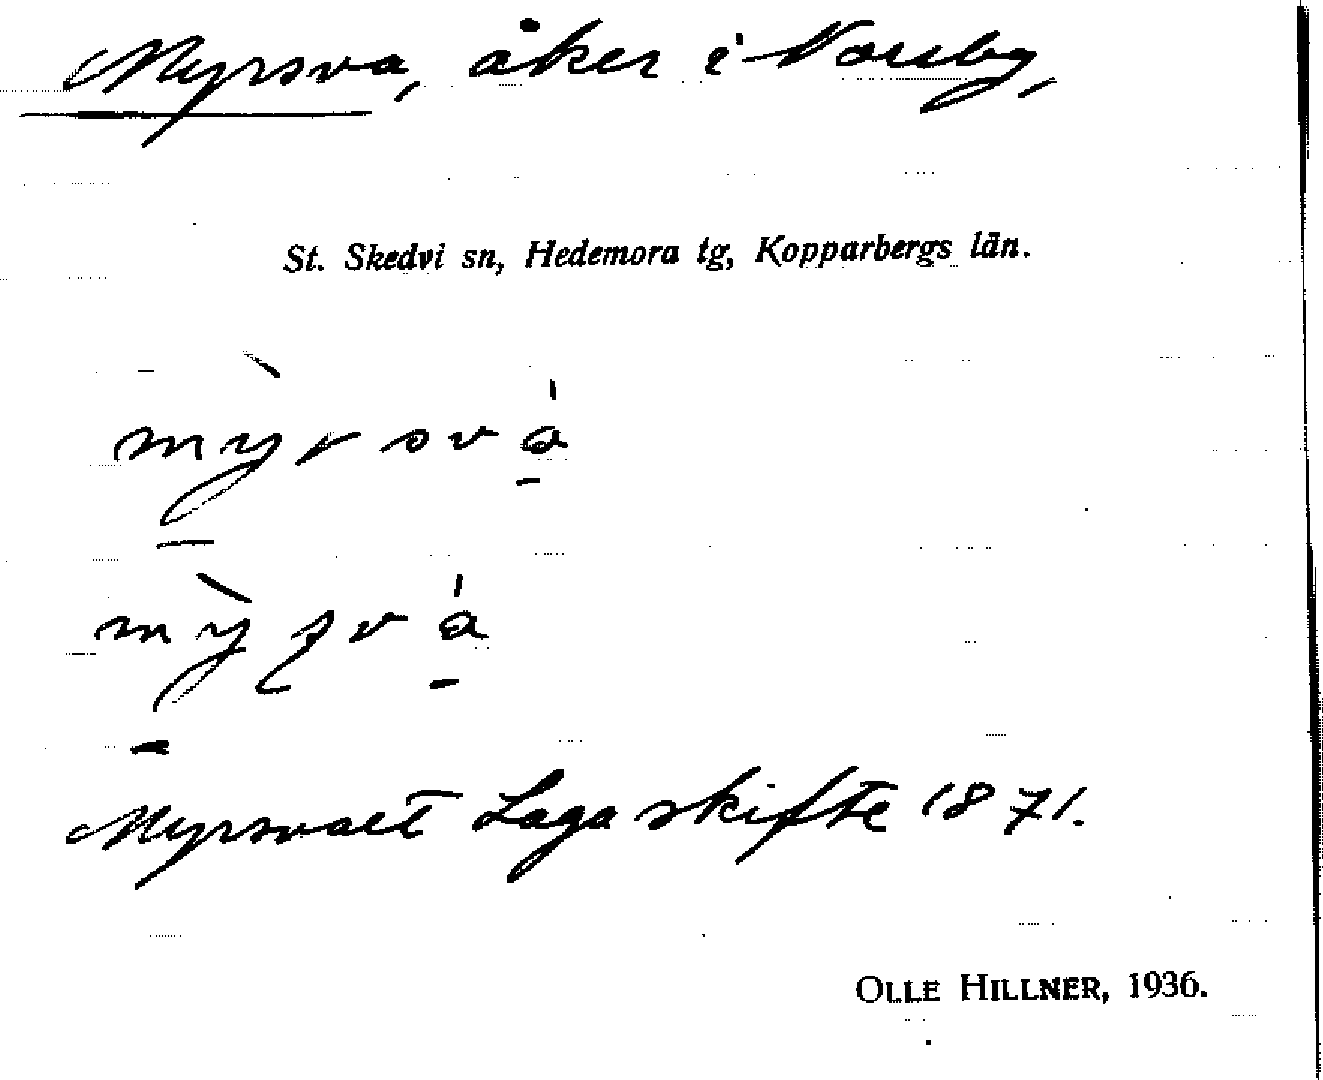 Myrsva, åker i Norrby,
St. Skedvi sn, Hedemora tg, Kopparbergs län.
Myrsvaet Laga skifte 1871.
OLLE HILLNER, 1936.